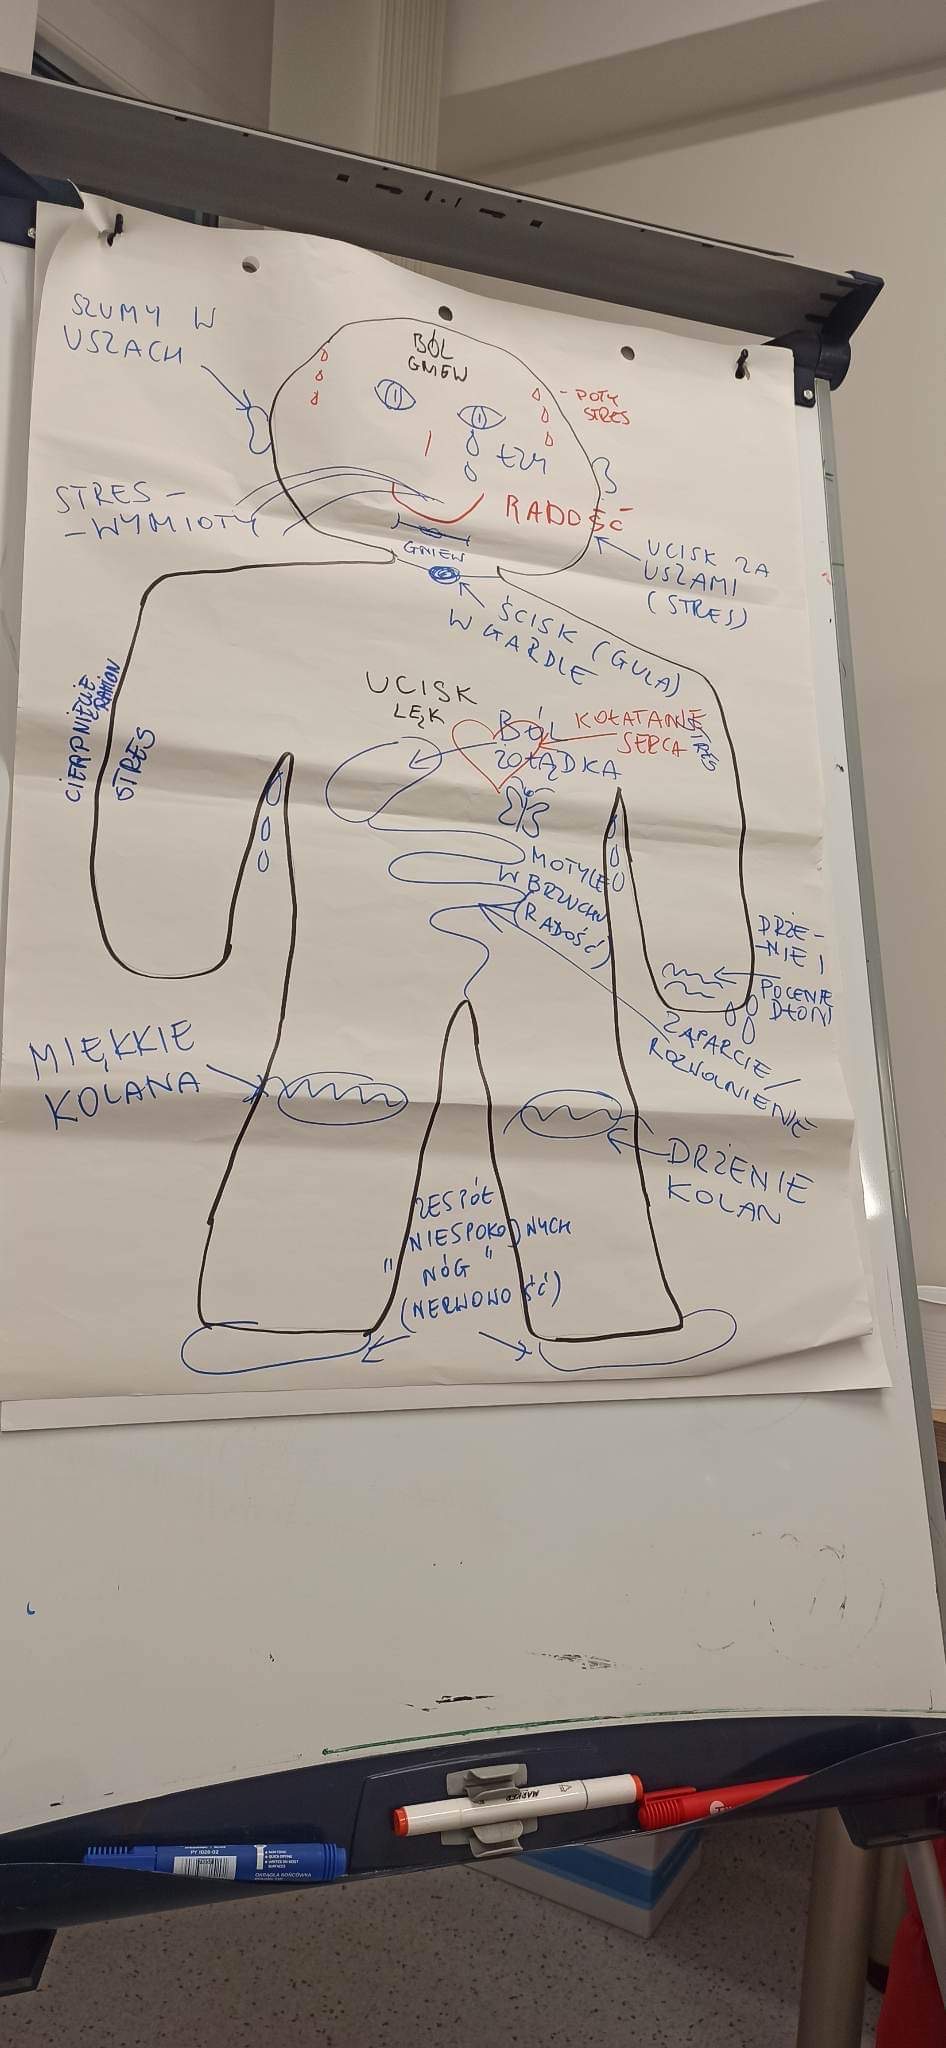 SZUMY W
USZACH
BÓL
GNIEW
- POTY
STRES
ŁZY
STRES -
- WYMIOTY
RADOŚĆ
GNIEW
UCISK ZA
USZAMI
(STRES)
ŚCISK (GULA)
W GARDLE
CIERPNIĘCIE
RAMION
STRES
UCISK
LĘK
BÓL
ŻOŁĄDKA
KOŁATANIE
SERCA
STRES
MOTYLE
W BRZUCHU
(RADOŚĆ)
DRŻE-
-NIE I
POCENIE
DŁONI
ZAPARCIE /
ROZWOLNIENIE
MIĘKKIE
KOLANA
DRŻENIE
KOLAN
ZESPÓŁ
"NIESPOKOJNYCH
NÓG"
(NERWOWOŚĆ)
MARKER
PY 1028-02